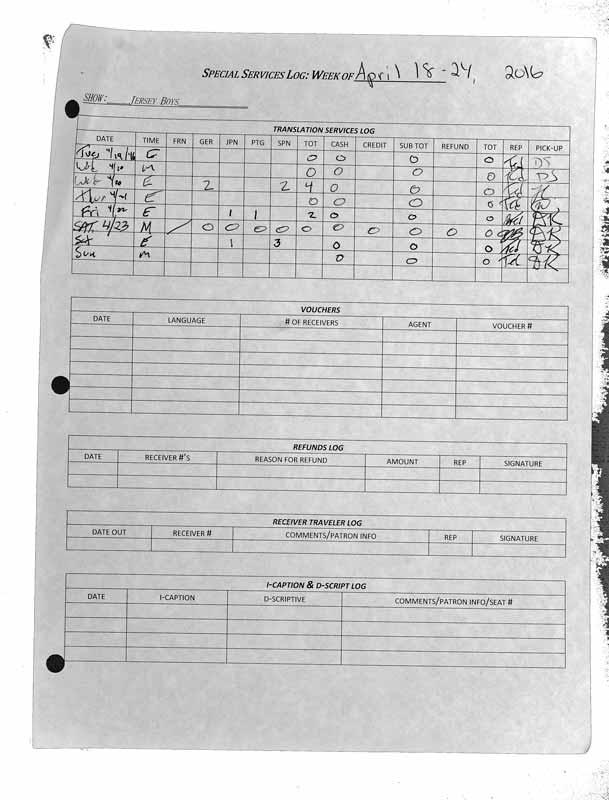 SPECIAL SERVICES LOG: WEEK OF April 18-24, 2016
SHOW: JERSEY BOYS
TRANSLATION SERVICES LOG
DATE TIME FRN GER JPN PTG SPN TOT CASH CREDIT SUB TOT REFUND TOT REP PICK-UP
Tues 4/19/16 E 0 0 0 0 Ted DS
Wed 4/20 M 0 0 0 0 Ted DS
Wed 4/20 E 2 2 4 0 0 0 Ted
Thur 4/21 E 0 0 0 0 Ted
Fri 4/22 E 1 1 2 0 0 0 Ted DK
SAT. 4/23 M / 0 0 0 0 0 0 0 0 0 0 DK
Sat E 1 3 0 0 0 Ted DK
Sun M 0 0 0 Ted DK
VOUCHERS
DATE LANGUAGE # OF RECEIVERS AGENT VOUCHER #
REFUNDS LOG
DATE RECEIVER #'S REASON FOR REFUND AMOUNT REP SIGNATURE
RECEIVER TRAVELER LOG
DATE OUT RECEIVER # COMMENTS/PATRON INFO REP SIGNATURE
I-CAPTION & D-SCRIPT LOG
DATE I-CAPTION D-SCRIPTIVE COMMENTS/PATRON INFO/SEAT #